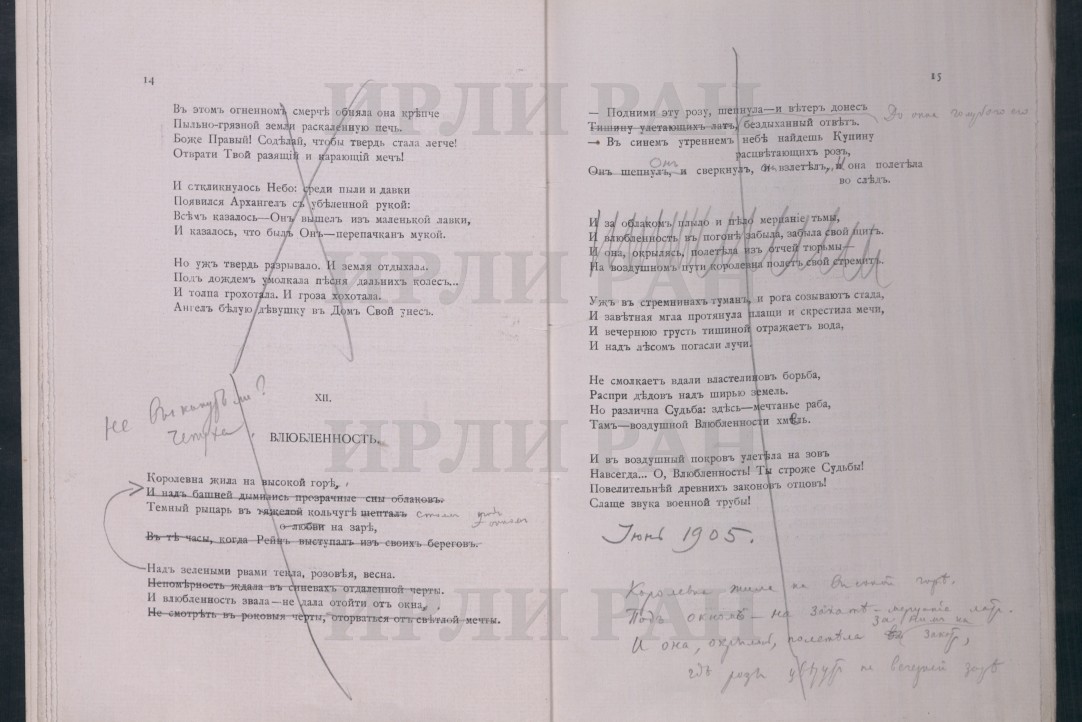 14
Въ этомъ огненномъ смерчѣ обняла она крѣпче
Пыльно-грязной земли раскаленную печь.
Боже Правый! Содѣлай, чтобы твердь стала легче!
Отврати Твой разящій и карающій мечъ!
И откликнулось Небо: среди пыли и давки
Появился Архангелъ съ убѣленной рукой:
Всѣмъ казалось—Онъ вышелъ изъ маленькой лавки,
И казалось, что былъ Онъ—перепачканъ мукой.
Но ужъ твердь разрывало. И земля отдыхала.
Подъ дождемъ умолкала пѣсня дальнихъ колесъ...
И толпа грохотала. И гроза хохотала.
Ангелъ бѣлую дѣвушку въ Домъ Свой унесъ.
не выкинуть ли?
чепуха.
XII.
ВЛЮБЛЕННОСТЬ.
Королевна жила на высокой горѣ,
И надъ башней дымились прозрачные сны облаковъ.
Темный рыцарь въ тяжелой кольчугѣ шепталъ
о любви на зарѣ,
Въ тѣ часы, когда Рейнъ выступалъ изъ своихъ береговъ.
Надъ зелеными рвами текла, розовѣя, весна.
Непомѣрность ждала въ синевахъ отдаленной черты.
И влюбленность звала—не дала отойти отъ окна,
Не смотрѣть въ роковыя черты, оторваться отъ свѣтлой мечты.
15
— Подними эту розу, шепнула—и вѣтеръ донесъ
До окна голубого его
Тишину улетающихъ латъ, бездыханный отвѣтъ.
— Въ синемъ утреннемъ небѣ найдешь Купину
расцвѣтающихъ розъ,
Онъ
Онъ шепнулъ, и сверкнулъ, и взлетѣлъ, и она полетѣла
во слѣдъ.
И за облакомъ плыло и пѣло мерцаніе тьмы,
И влюбленность въ погонѣ забыла, забыла свой щитъ.
И она, окрылясь, полетѣла изъ отчей тюрьмы—
На воздушномъ пути королевна полетъ свой стремитъ.
Ужъ въ стремнинахъ туманъ, и рога созываютъ стада,
И завѣтная мгла протянула плащи и скрестила мечи,
И вечернюю грусть тишиной отражаетъ вода,
И надъ лѣсомъ погасли лучи.
Не смолкаетъ вдали властелиновъ борьба,
Распри дѣдовъ надъ ширью земель.
Но различна Судьба: здѣсь—мечтанье раба,
Тамъ—воздушной Влюбленности хмѣль.
И въ воздушный покровъ улетѣла на зовъ
Навсегда... О, Влюбленность! Ты строже Судьбы!
Повелительнѣй древнихъ законовъ отцовъ!
Слаще звука военной трубы!
Іюнь 1905.
Королевна жила на высокой горѣ.
Подъ окномъ — на закатѣ — мерцаніе латъ.
за нимъ на
И она, окрылясь, полетѣла въ закатъ,
гдѣ розы цвѣтутъ на вечерней зарѣ
ИРЛИ РАН
ИРЛИ РАН
ИРЛИ РАН
ИРЛИ РАН